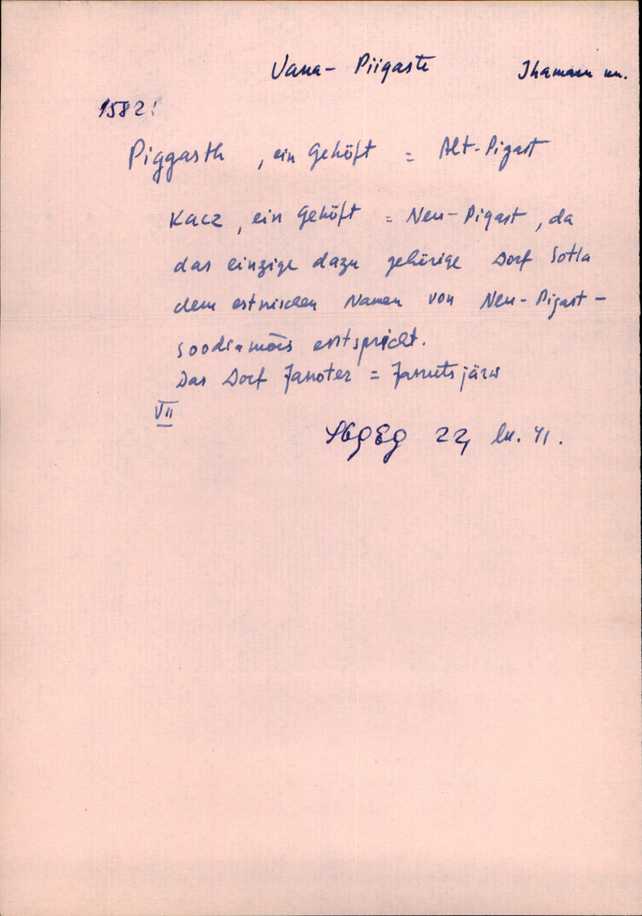 Vana- Piigaste Ihamaru un.
1582:
Piggasth , ein Gehöft = Alt-Pigast
Kacz , ein Gehöft = Neu-Pigast , da
das einzige dazu gehörige Dorf Sotia
dem estnischen Namen von Neu-Pigast -
soodsamõis entspricht.
Das Dorf Janoter = Jannutsjärw
VII
SbGEG 22, lk. 41.